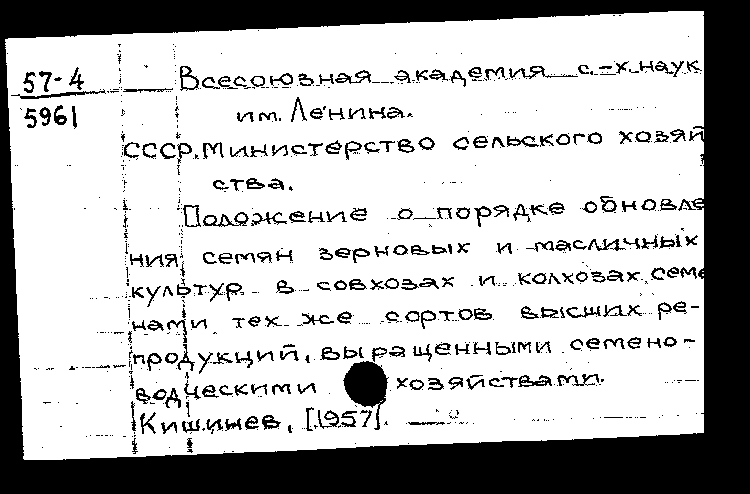 57-4 Всесоюзная академия с.-х. наук
5961 им. Ленина.
СССР. Министерство сельского хозяй
ства.
Положение о порядке обновле
ния семян зерновых и масличных
культур в совхозах и колхозах семе
нами тех же сортов высших ре-
продукций, выращенными семено-
водческими хозяйствами.
Кишинев, [1957].